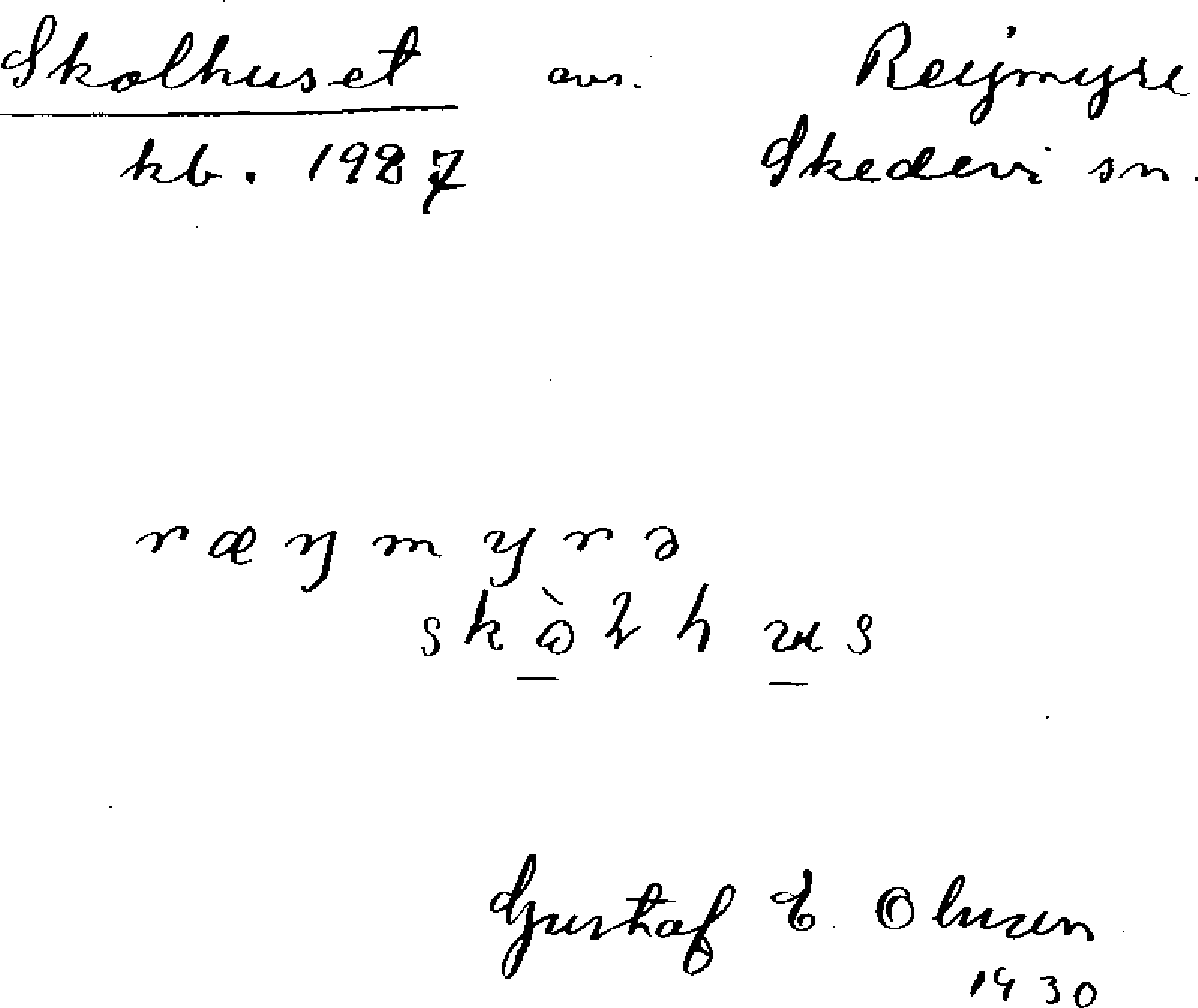 Skolhuset avs. Reijmyre
kb. 1927 Skedevi sn.
ræŋmyrə
skòlhus
Gustaf E. Olsson
1930